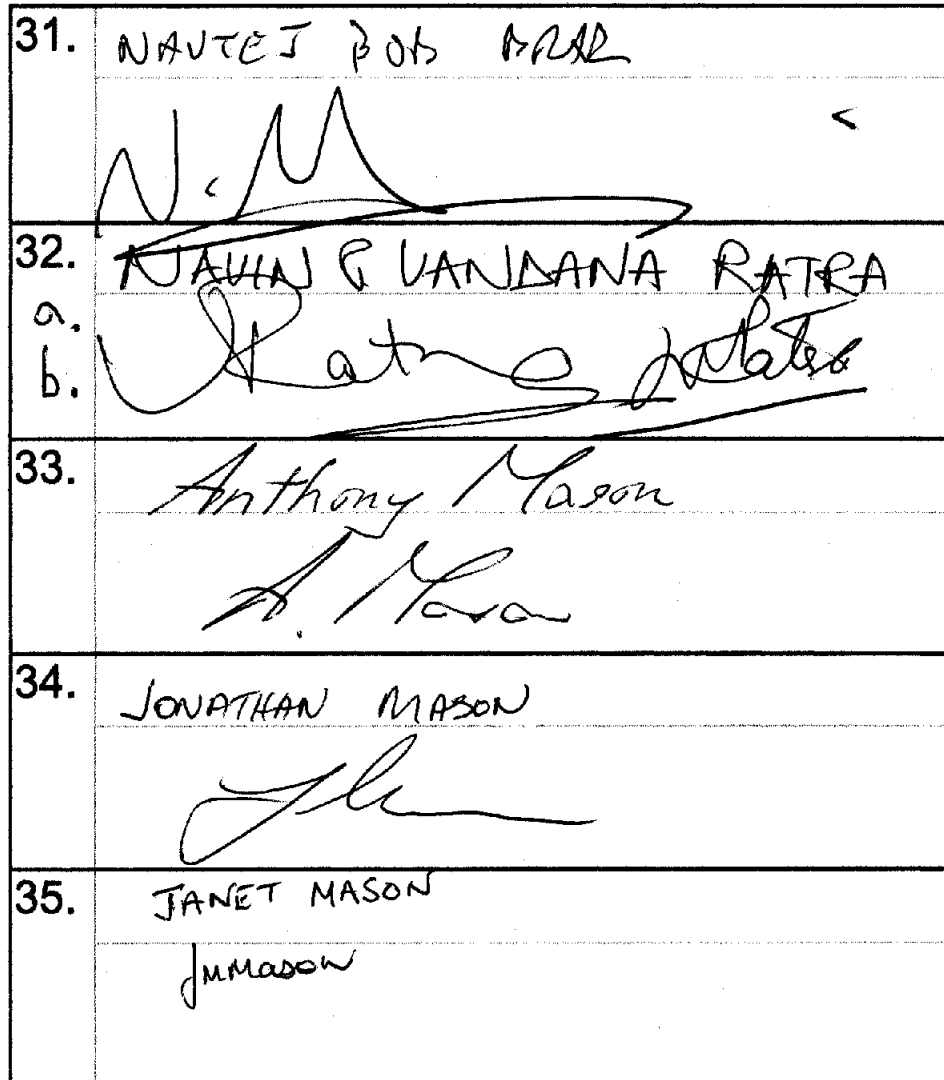 31. NAVTEJ BOB BRAR
32. NAVIN & VANDANA RATRA
a.
b. VRatra NRatra
33. Anthony Mason
A. Mason
34. JONATHAN MASON
35. JANET MASON
JMMason